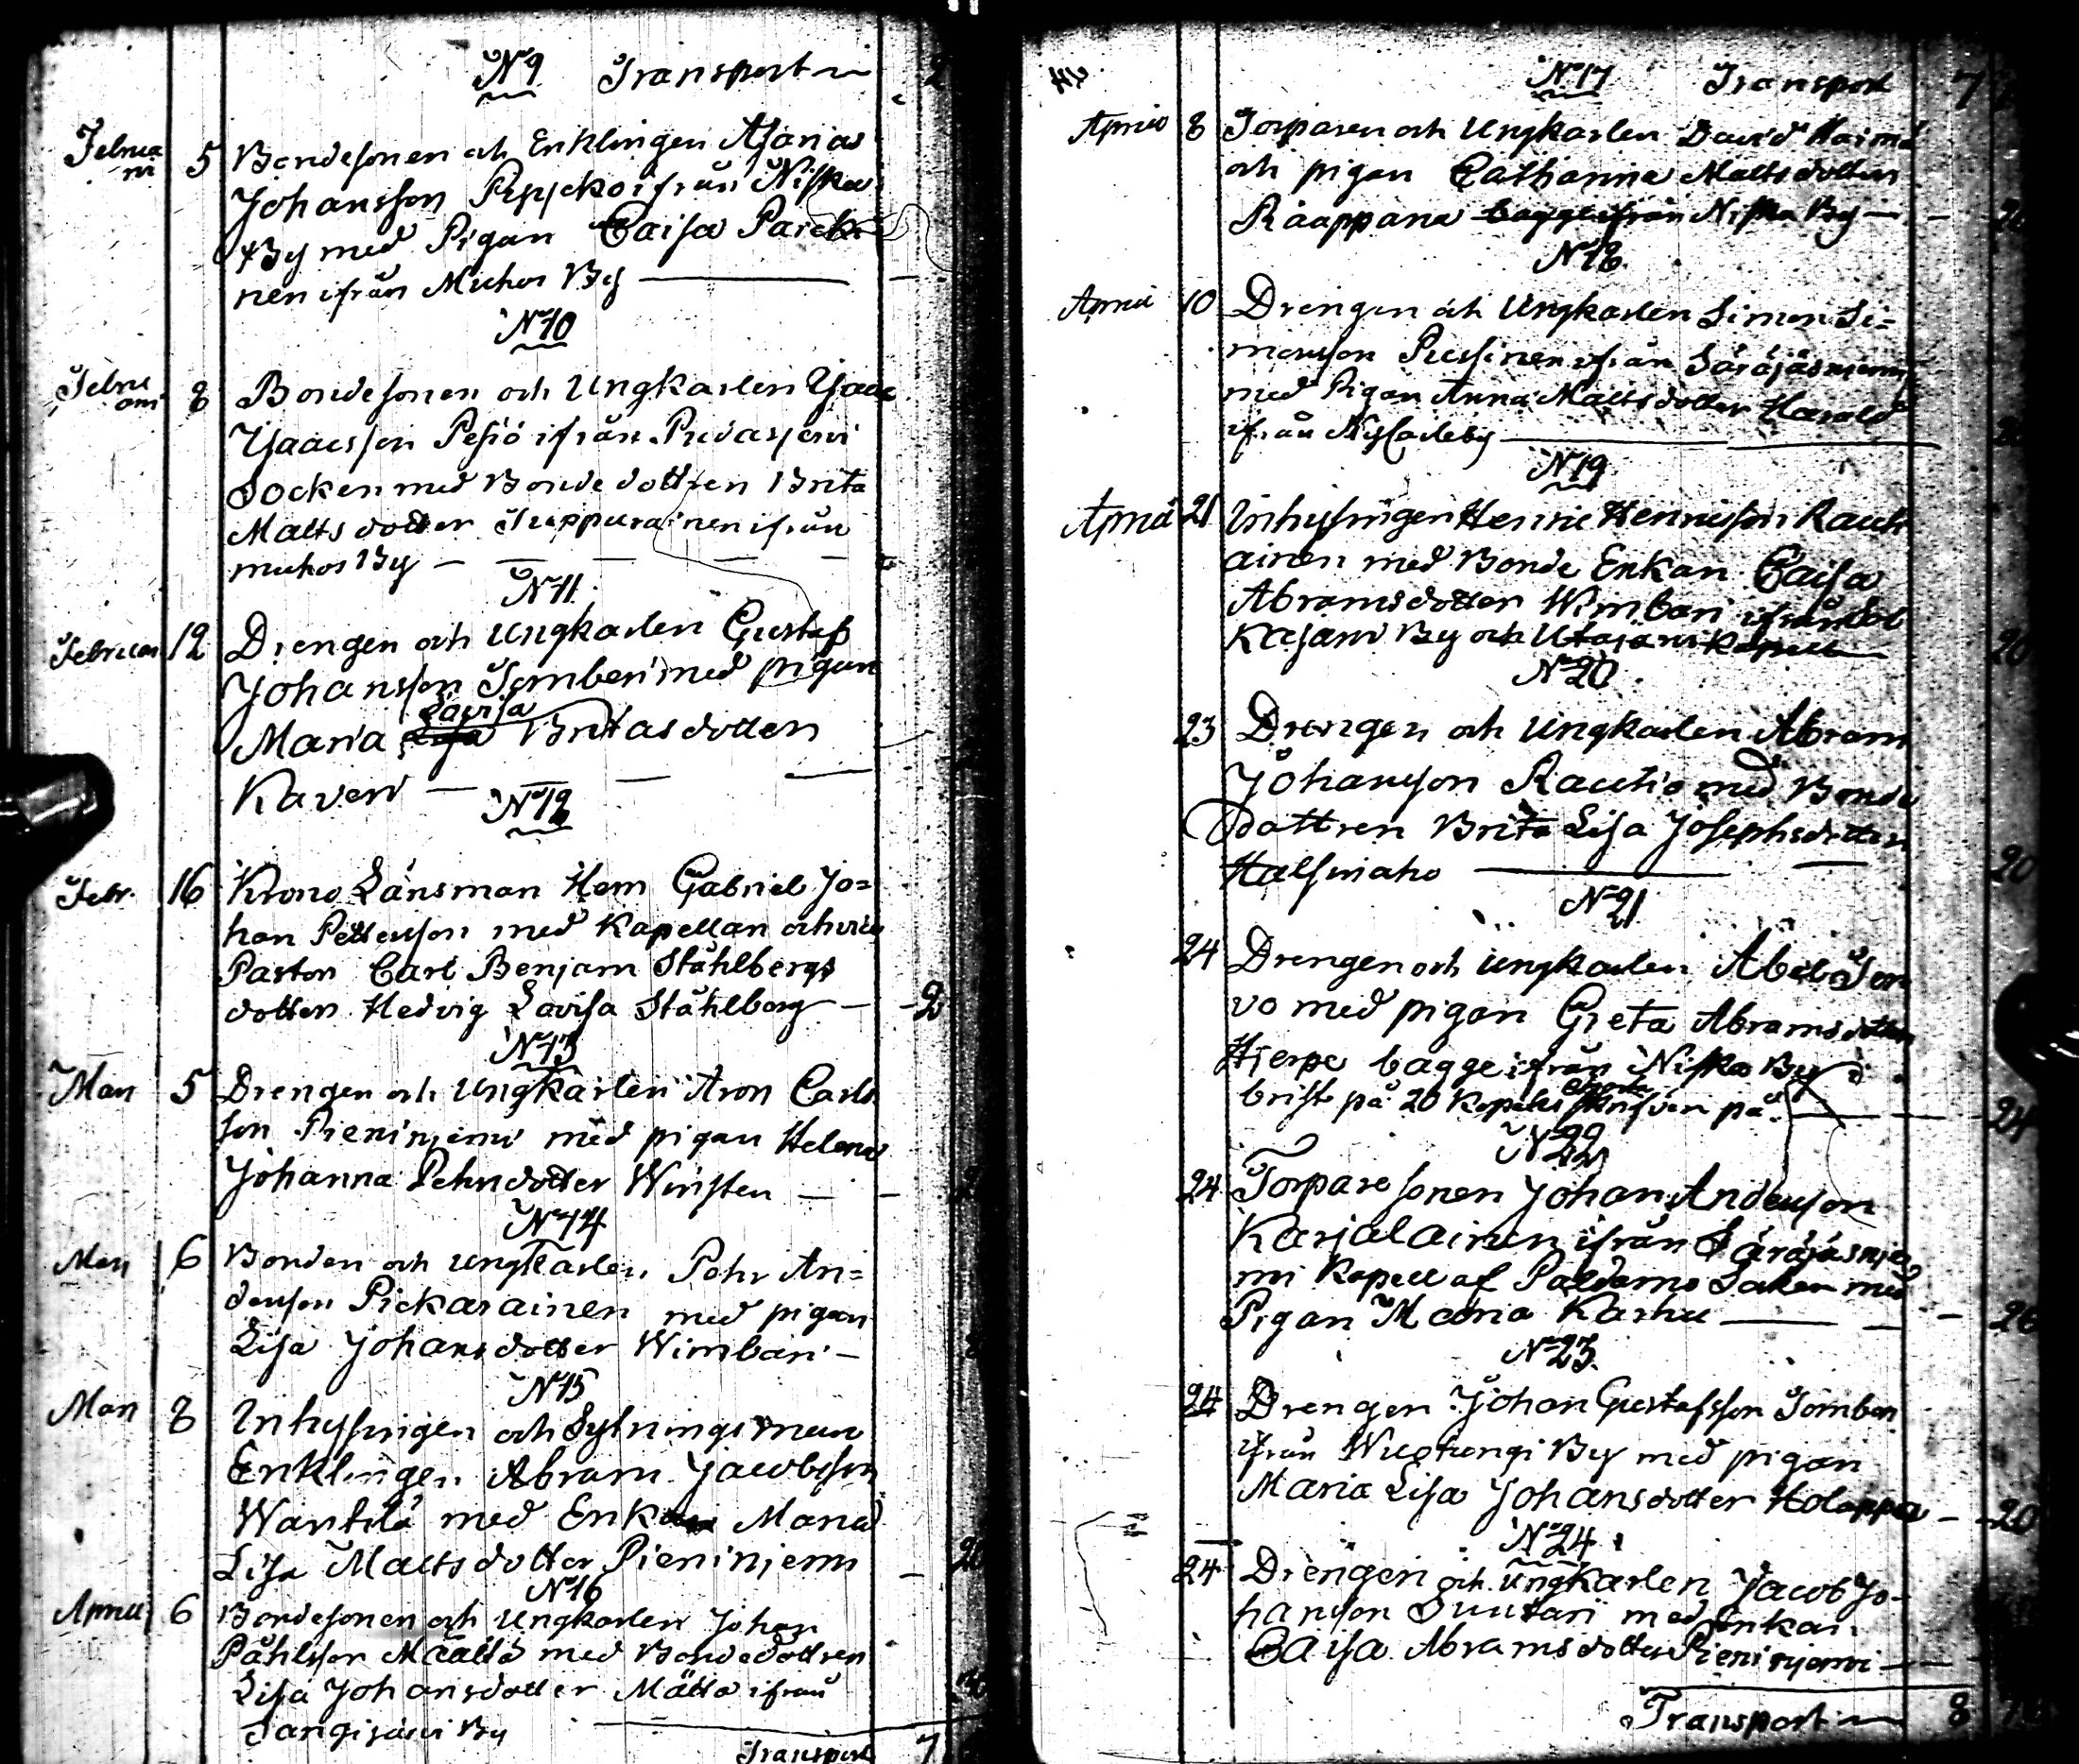 N:9 Transport 2
Februa
ri 5 Bondesonen och Enklingen Asarias
Johansson Pepjekoi från Niska
By med Pigan Caisa Parcki
nen ifrån Muhos By
N:10
Febru
ari 8 Bondesonen och Ungkarlen Isaac
Isaacsson Pesiö ifrån Pudasjervi
Socken med Bondedottren Brita
Mattsdotter Juppurainen ifrån
muhos By
N:11
Februari 12 Drengen och Ungkarlen Gustaf
Johansson Tomberi med pigan
Lavisa
Maria Britasdotter
Kaveri
N:12
Febr. 16 Krono Länsman Herr Gabriel Jo=
han Pettersson med Kapellan och vice
Paston Carl Benjam Ståhlbergs
dotter Hedvig Lovisa Ståhlberg
N:13
Mars 5 Drengen och Ungkarlen Aron Carls
son Pieninjemi med pigan Helena
Johanna Pehrsdotter Winsten
N:14
Mars 6 Bonden och Ungkarlen Pehr An=
dersson Pickarainen med pigan
Lisa Johansdotter Wimbari
N:15
Mars 8 Inhysingen och Sytningsman
Enklingen Abram Jacobsson
Wanhila med Enkan Maria
Lisa Mattsdotter Pieninjemi 20
N:16
April 6 Bondesonen och Ungkarlen Johan
Påhlsson Määttä med Bondedottren
Lisa Johansdotter Mättä ifrån
Tangisjärvi By
Transport 7
N:17 Transport 7
April 8 Torparen och Ungkarlen David
och pigan Catharina Mattsdotter
Räappana bagge ifrån Niska By 20
N:18
April 10 Drengen och Ungkarlen Simon Si=
monsson Pussinen ifrån Säräjäsniemi
med Pigan Anna Mattsdotter Harald
ifrån NyCarleby
N:19
April 21 Inhysingen Henric Henricsson Rauti
ainen med Bonde Enkan Caisa
Abramsdotter Wimbari ifrån Sot
Kajarvi By och Utajärvi Kapell 20
N:20
23 Drengen och Ungkarlen Abram
Johansson Rautio med Bonde
Dottren Brita Lisa Josephsdotter
Halsinaho 20
N:21
24 Drengen och Ungkarlen Abel Tor
vo med pigan Greta Abramsdotter
Hjerpe bagge ifrån Niska By
brist på 20 Kopeks på 24
N:22
24 Torparesonen Johan Andersson
Karjalainen ifrån Säräjäsnie
mi Kapell af Paldamo Soken med
Pigan Maria Karhu 20
N:23
24 Drengen Johan Gustafsson Tomberi
ifrån Wuotungi By med pigan
Maria Lisa Johansdotter Holappa 20
N:24
24 Drengen och Ungkarlen Jacob Jo-
hansson Suutari med Enkan
Caisa Abramsdotter Pieninjemi
Transport 8